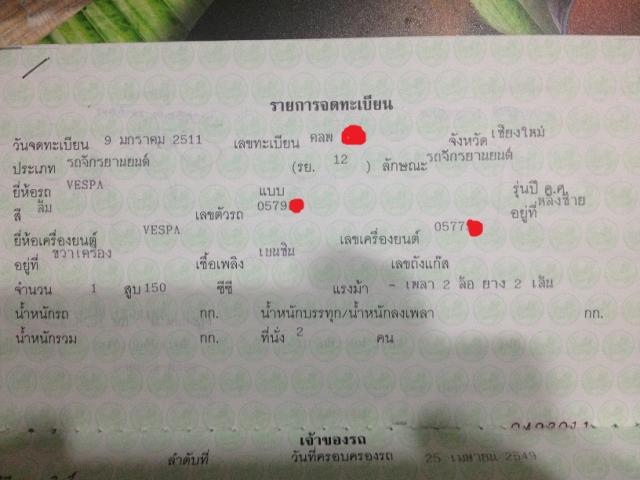 รายการจดทะเบียน
วันจดทะเบียน 9 มกราคม 2511 เลขทะเบียน คลพ จังหวัด เชียงใหม่
ประเภท รถจักรยานยนต์ (รย. 12 ) ลักษณะ รถจักรยานยนต์
ยี่ห้อรถ VESPA แบบ รุ่นปี ค.ศ.
สี ส้ม เลขตัวรถ 0579 อยู่ที่ หลังซ้าย
ยี่ห้อเครื่องยนต์ VESPA เลขเครื่องยนต์ 0577
อยู่ที่ ขวาเครื่อง เชื้อเพลิง เบนซิน เลขถังแก๊ส
จำนวน 1 สูบ 150 ซีซี แรงม้า - เพลา 2 ล้อ ยาง 2 เส้น
น้ำหนักรถ กก. น้ำหนักบรรทุก/น้ำหนักลงเพลา กก.
น้ำหนักรวม กก. ที่นั่ง 2 คน
เจ้าของรถ
ลำดับที่ วันที่ครอบครองรถ 25 เมษายน 2549